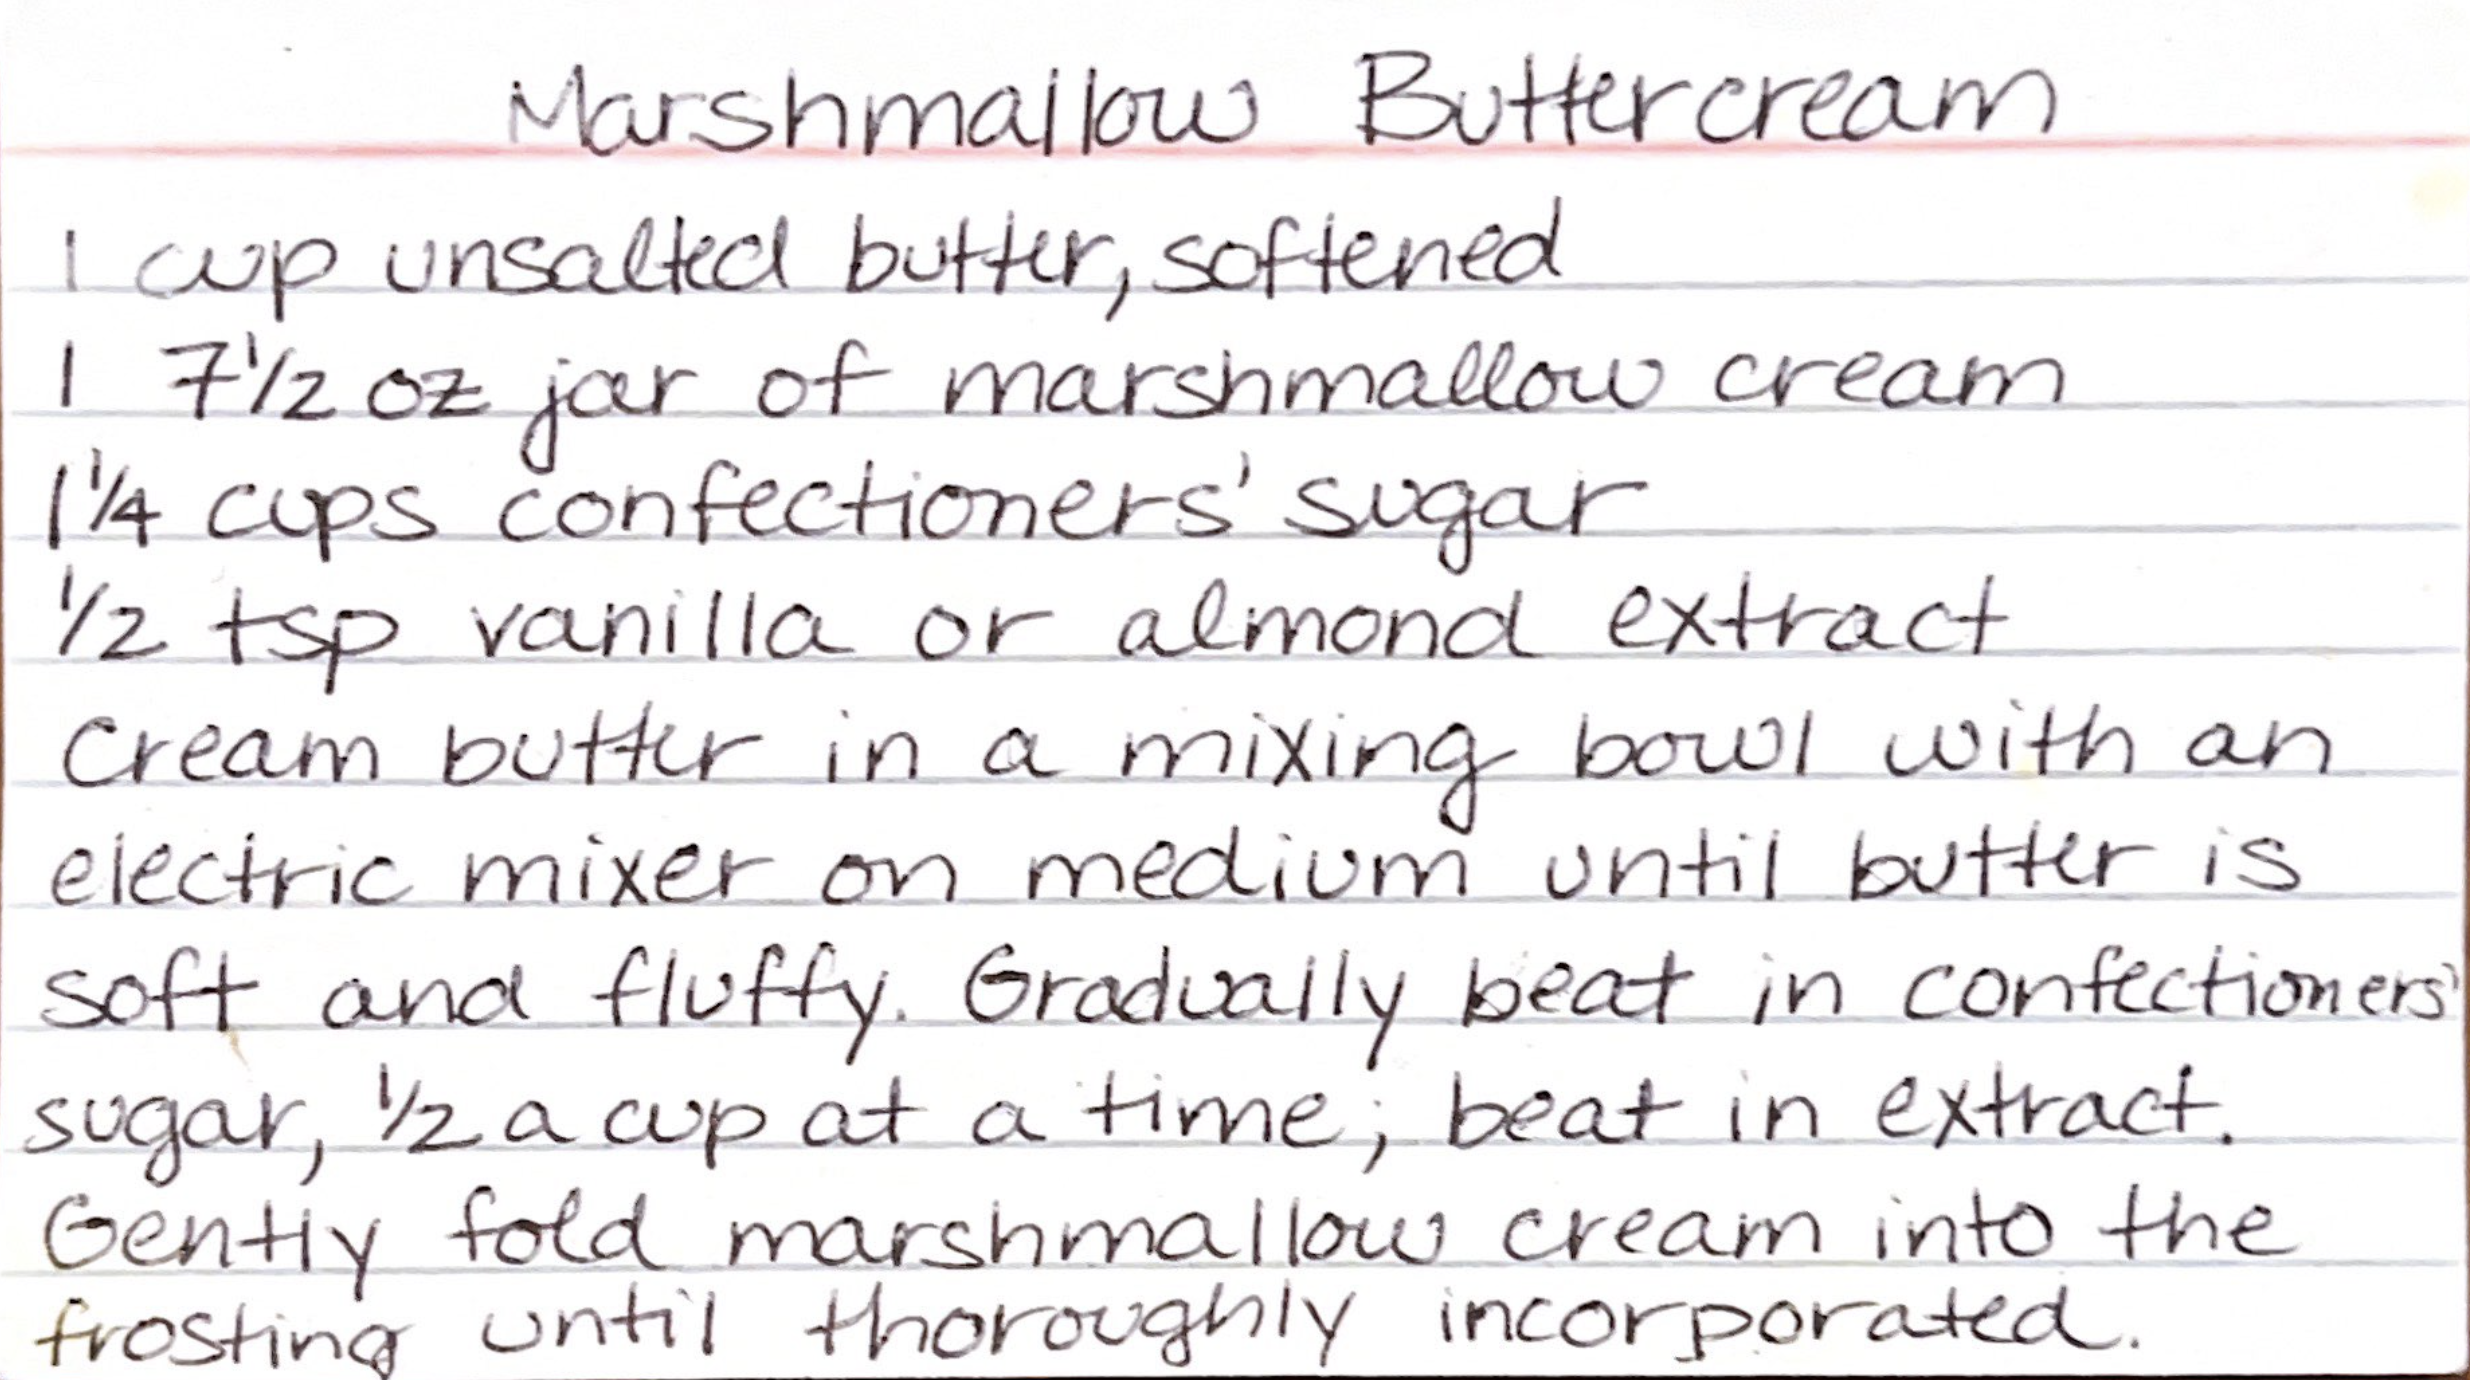 Marshmallow Buttercream
1 cup unsalted butter, softened
1 7 1/2 oz jar of marshmallow cream
1 1/4 cups confectioners' sugar
1/2 tsp vanilla or almond extract
Cream butter in a mixing bowl with an
electric mixer on medium until butter is
soft and fluffy. Gradually beat in confectioners'
sugar, 1/2 a cup at a time; beat in extract.
Gently fold marshmallow cream into the
frosting until thoroughly incorporated.